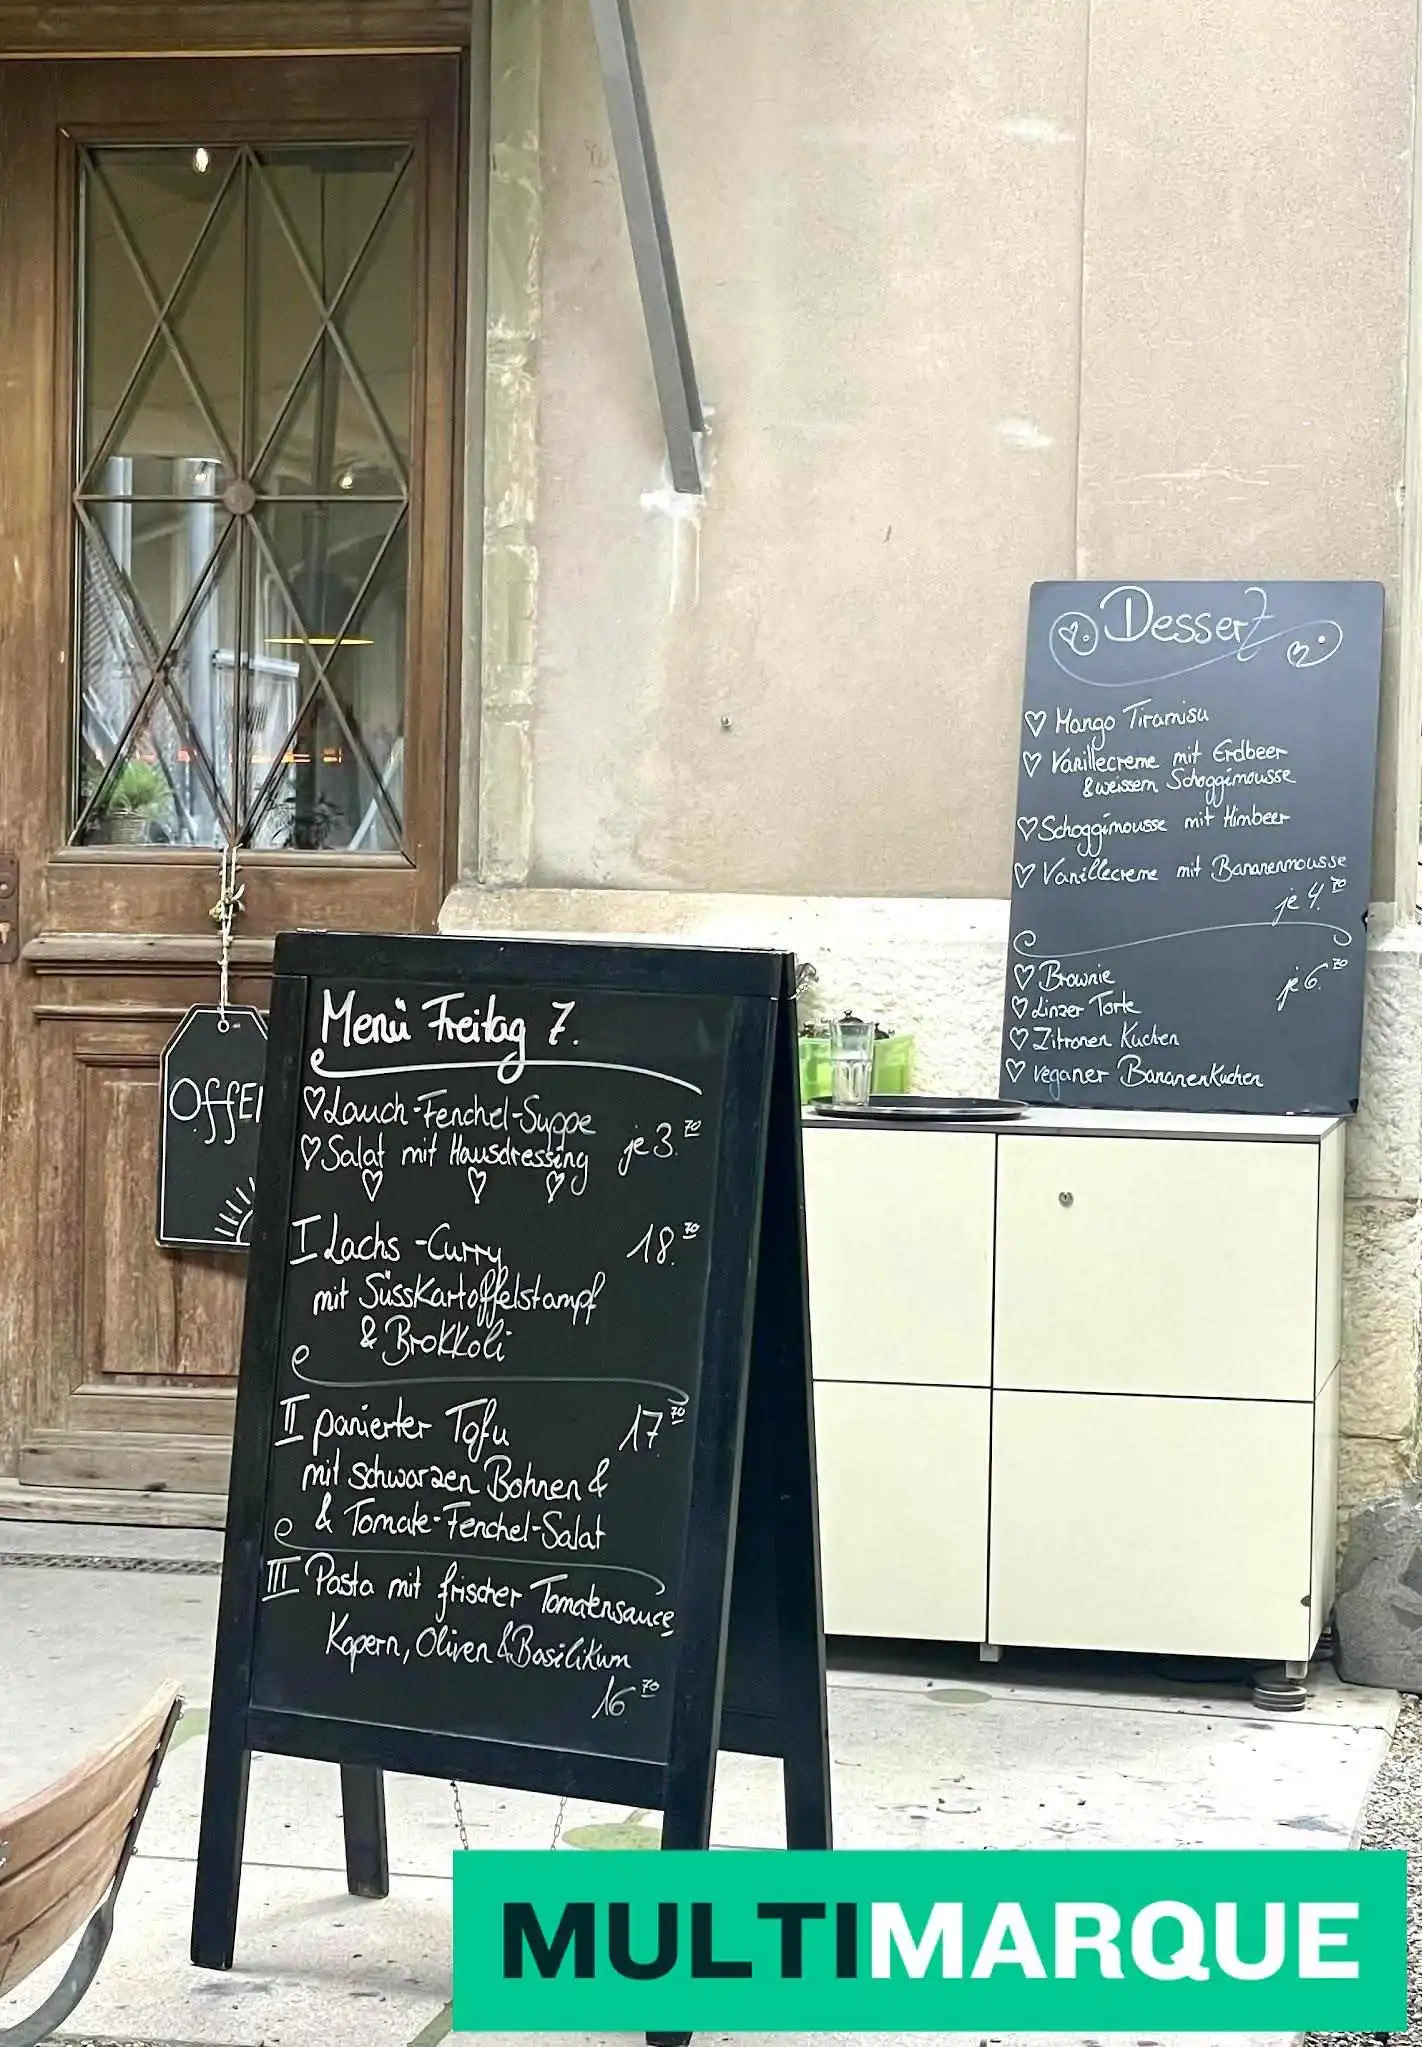 Dessert
Mango Tiramisu
Vanillecreme mit Erdbeer
& weissem Schoggimousse
Schoggimousse mit Himbeer
Vanillecreme mit Bananenmousse
je 4.70
Brownie
je 6.70
Linzer Torte
Zitronen Kuchen
veganer Bananenkuchen
OffE
Menü Freitag 7.
Lauch-Fenchel-Suppe
Salat mit Hausdressing je 3.70
I Lachs-Curry 18.70
mit Süsskartoffelstampf
& Brokkoli
II panierter Tofu 17.70
mit schwarzen Bohnen &
& Tomate-Fenchel-Salat
III Pasta mit frischer Tomatensauce
Kapern, Oliven & Basilikum
16.70
MULTIMARQUE